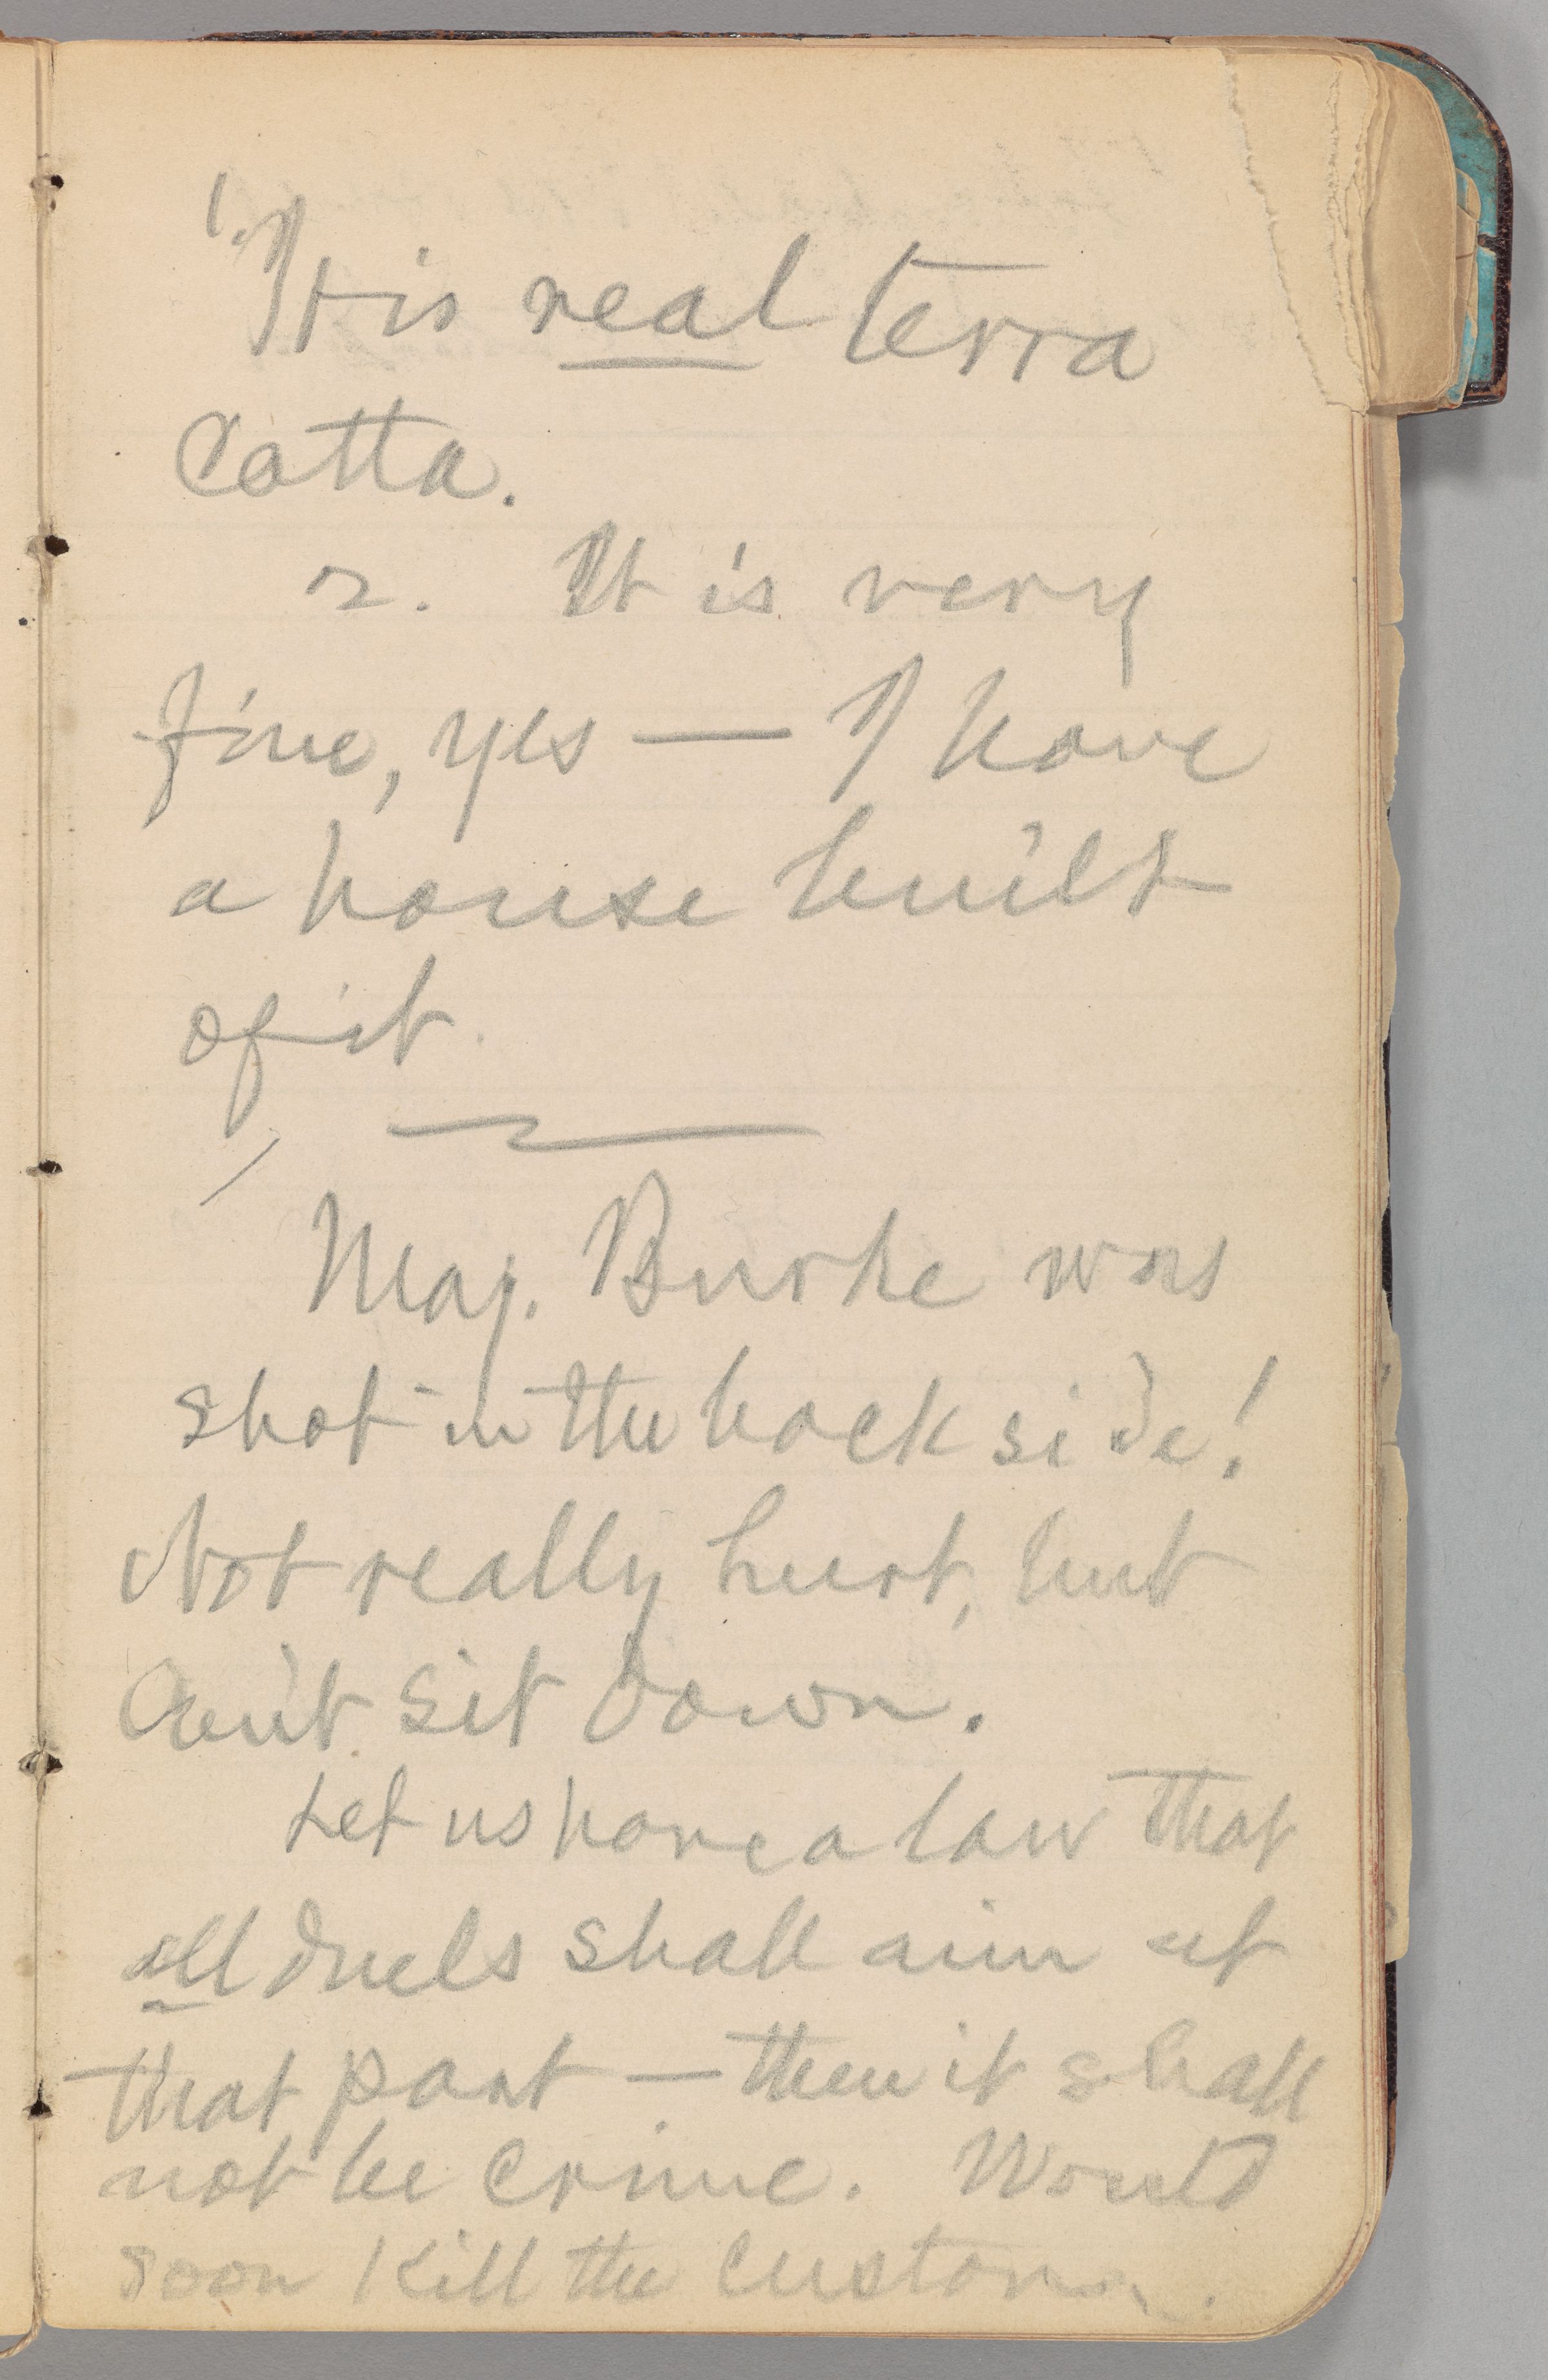 1. It is real terra
Cotta.
2. It is very
fine, yes — I have
a house built
of it.
Maj. Burke was
shot in the back side!
Not really hurt, but
Can't sit down.
Let us have a law that
all duels shall aim at
that part — then it shall
not be crime. Would
soon kill the custom.